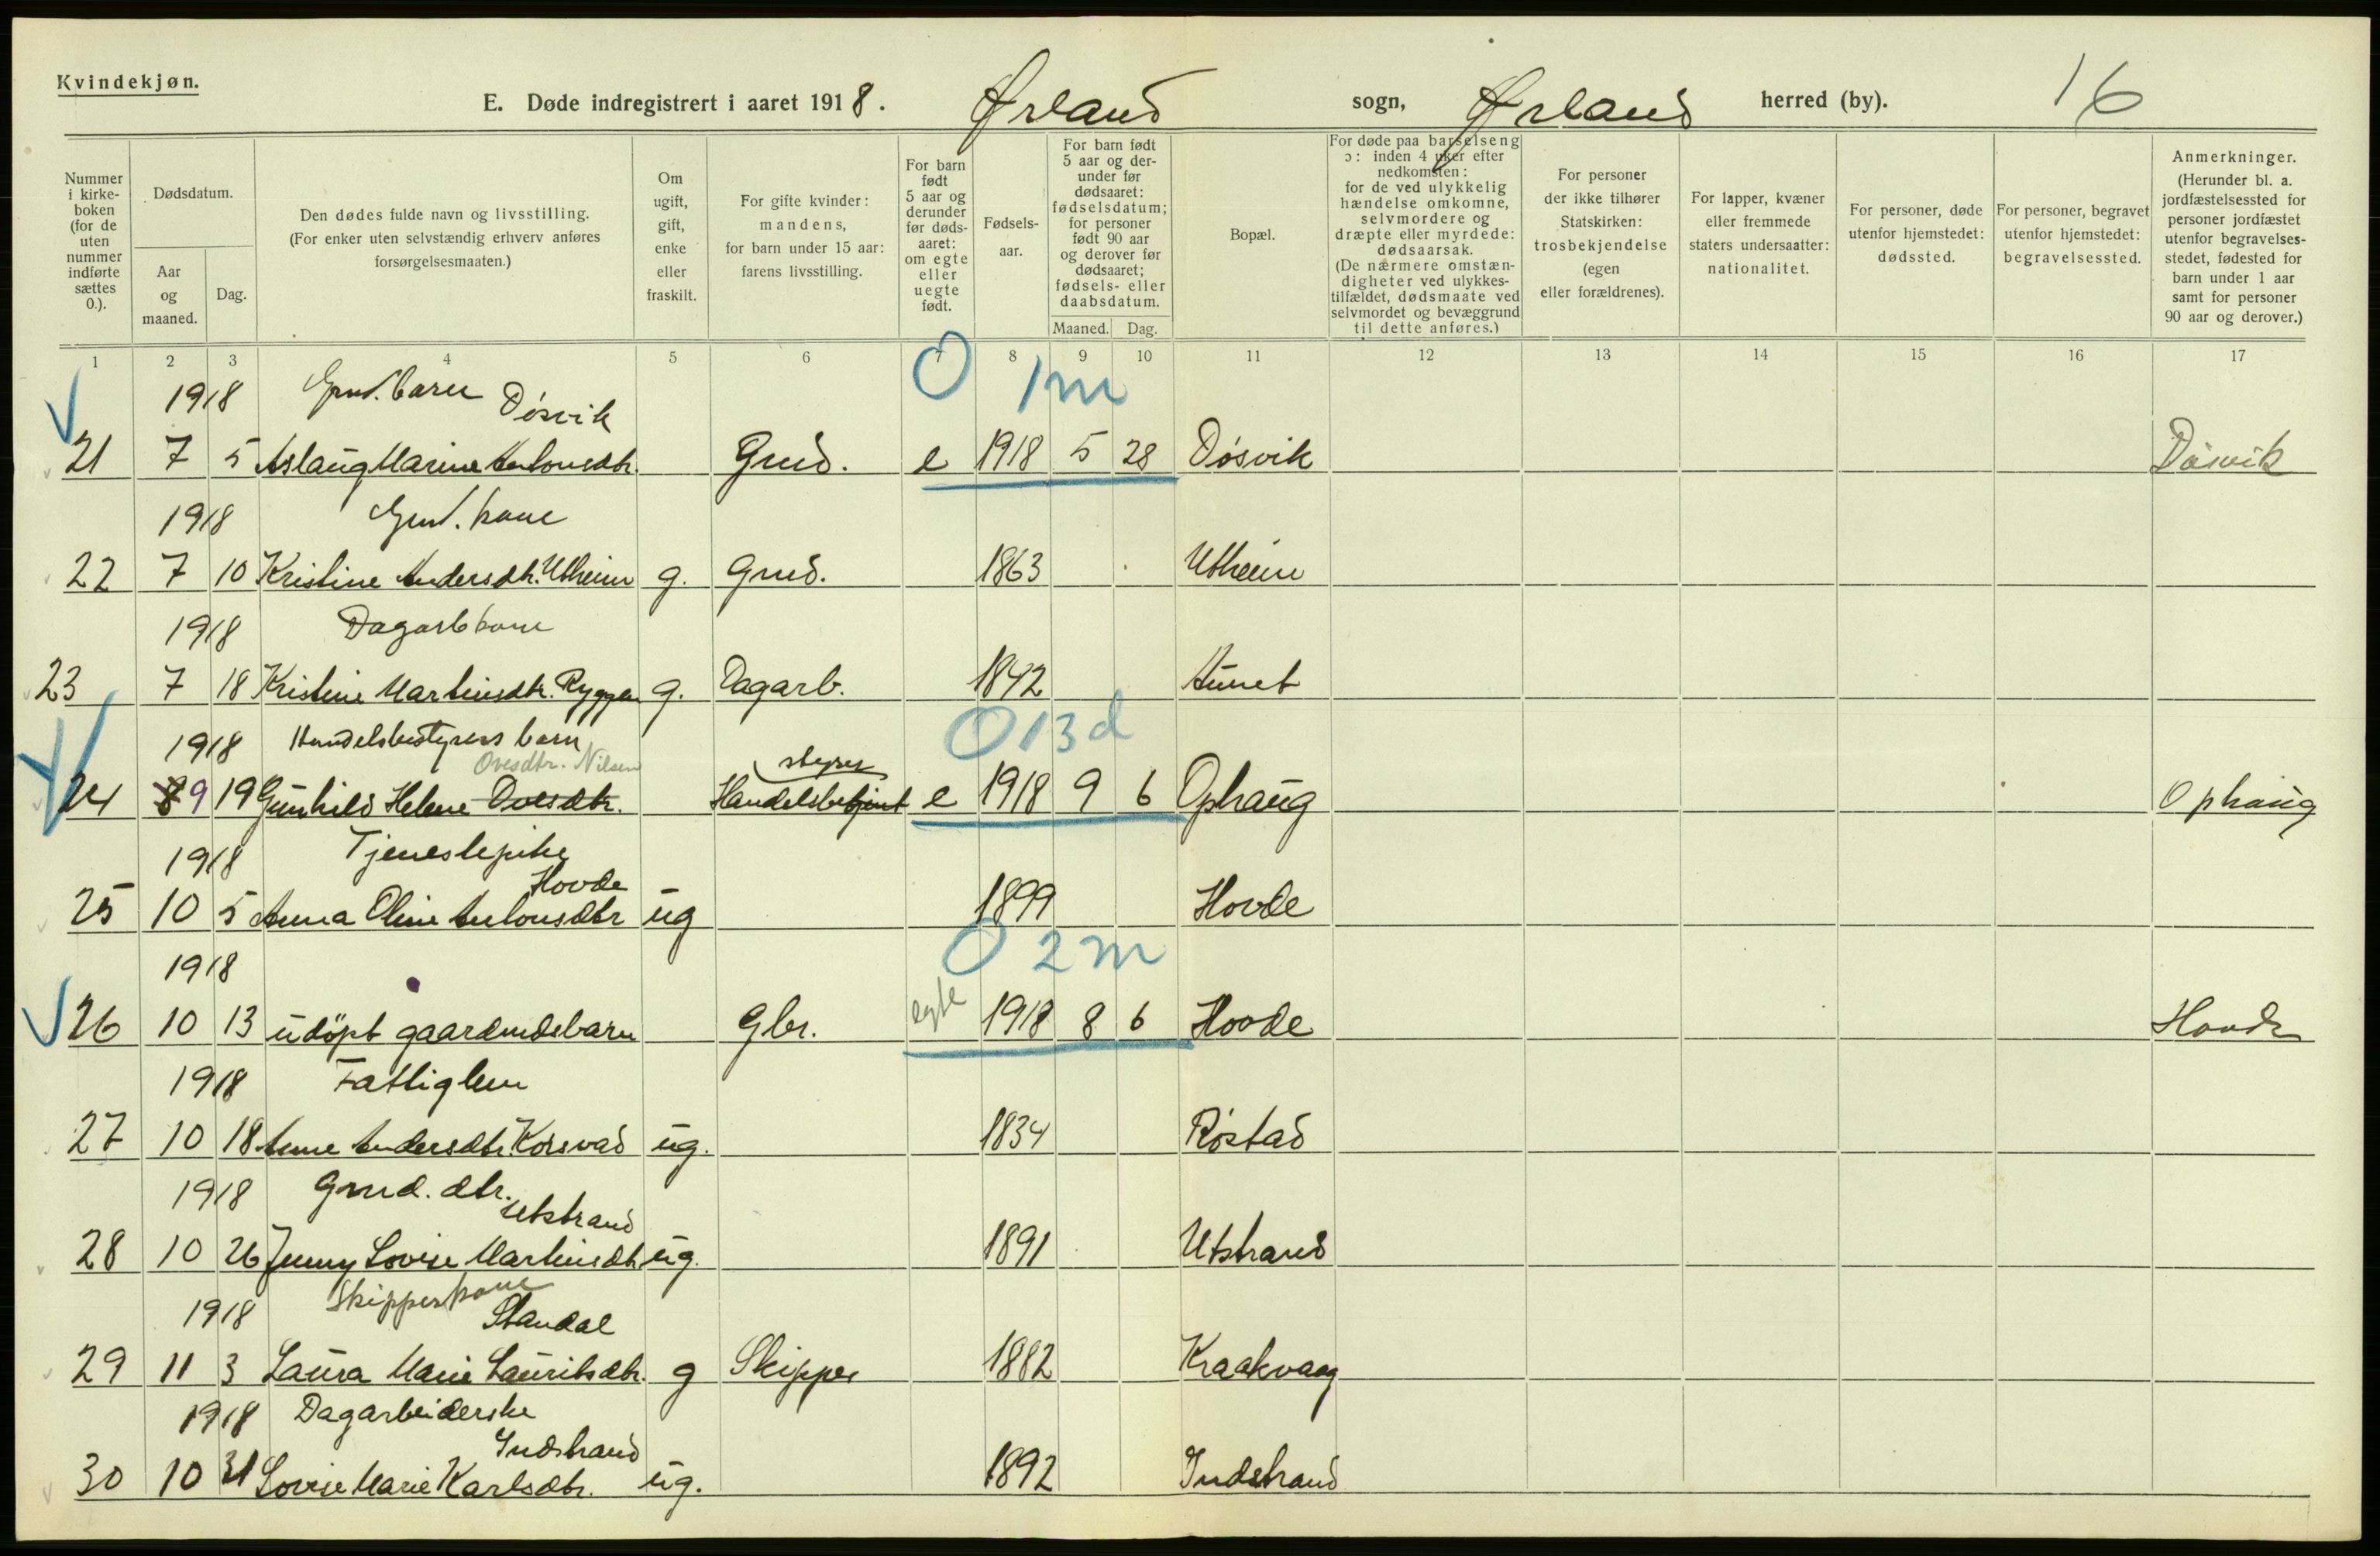 Kvindekjøn.
E. Døde indregistrert i aaret 1918. Ørland sogn, Ørland herred (by). 16
Nummer i kirke-boken (for de uten nummer indførte sættes 0.).
Dødsdatum.
Aar og maaned.
Dag.
Den dødes fulde navn og livsstilling. (For enker uten selvstændig erhverv anføres forsørgelsesmaaten.)
Om ugift, gift, enke eller fraskilt.
For gifte kvinder: mandens, for barn under 15 aar: farens livsstilling.
For barn født 5 aar og derunder før døds-aaret: om egte eller uegte født.
Fødsels-aar.
For barn født 5 aar og der-under før dødsaaret: fødselsdatum; for personer født 90 aar og derover før dødsaaret; fødsels- eller daabsdatum.
Maaned. Dag.
Bopæl.
For døde paa barselseng ɔ: inden 4 uker efter nedkomsten: for de ved ulykkelig hændelse omkomne, selvmordere og dræpte eller myrdede: dødsaarsak. (De nærmere omstæn-digheter ved ulykkes-tilfældet, dødsmaate ved selvmordet og bevæggrund til dette anføres.)
For personer der ikke tilhører Statskirken: trosbekjendelse (egen eller forældrenes).
For lapper, kvæner eller fremmede staters undersaatter: nationalitet.
For personer, døde utenfor hjemstedet: dødssted.
For personer, begravet utenfor hjemstedet: begravelsessted.
Anmerkninger. (Herunder bl. a. jordfæstelsessted for personer jordfæstet utenfor begravelses-stedet, fødested for barn under 1 aar samt for personer 90 aar og derover.)
1 2 3 4 5 6 7 8 9 10 11 12 13 14 15 16 17
1918 Grmd. barn Døsvik 0 1m
21 7 5 Aslaug Marine Antonsdtr. Grmd. e 1918 5 28 Døsvik Døsvik
1918 Grmd. kone
22 7 10 Kristine Andersdtr. Utheim g. Grmd. 1863 Utheim
1918 Dagarb kone
23 7 18 Kristine Martinsdtr. Ryggen g. Dagarb. 1842 Aunet
1918 Handelsbestyrers barn Ovesdtr. Nilsen styrer 0 13d
24 8 9 19 Gunhild Helene Ovesdtr. Handelsbetjent e 1918 9 6 Ophaug Ophaug
1918 Tjenestepike Hovde
25 10 5 Anna Oline Antonsdtr ug 1899 Hovde
1918 0 2m
26 10 13 udöpt gaardmdsbarn Gbr. egte 1918 8 6 Hovde Hovde
1918 Fattiglem
27 10 18 Anne Andersdtr. Korsvad ug. 1834 Røstad
1918 Grmd. dtr. Utstrand
28 10 26 Jenny Lovise Martinsdtr ug. 1891 Utstrand
1918 Skipperkone Standal
29 11 3 Laura Marie Lauritsdtr. g Skipper 1882 Kraakvaag
1918 Dagarbeiderske Indstrand
30 10 31 Lovise Marie Karlsdtr. ug. 1892 Indstrand